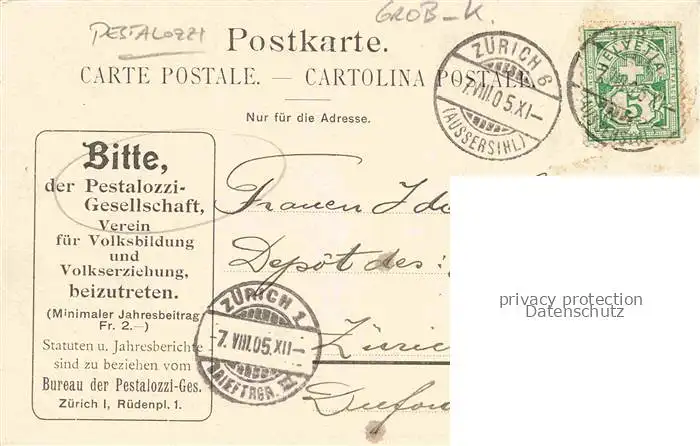 PESTALOZZI
GROB-K.
Postkarte.
CARTE POSTALE. — CARTOLINA POSTALE.
Nur für die Adresse.
ZÜRICH 6
7.VIII.05.XI–
(AUSSERSIHL)
HELVETIA
5
Bitte,
der Pestalozzi-
Gesellschaft,
Verein
für Volksbildung
und
Volkserziehung,
beizutreten.
(Minimaler Jahresbeitrag
Fr. 2.—)
Statuten u. Jahresberichte
sind zu beziehen vom
Bureau der Pestalozzi-Ges.
Zürich I, Rüdenpl. 1.
Frauen
Depôt des
Züric
Dufou
ZÜRICH 1
–7.VIII.05.XII–
BRIEFTRGR. III
privacy protection
Datenschutz